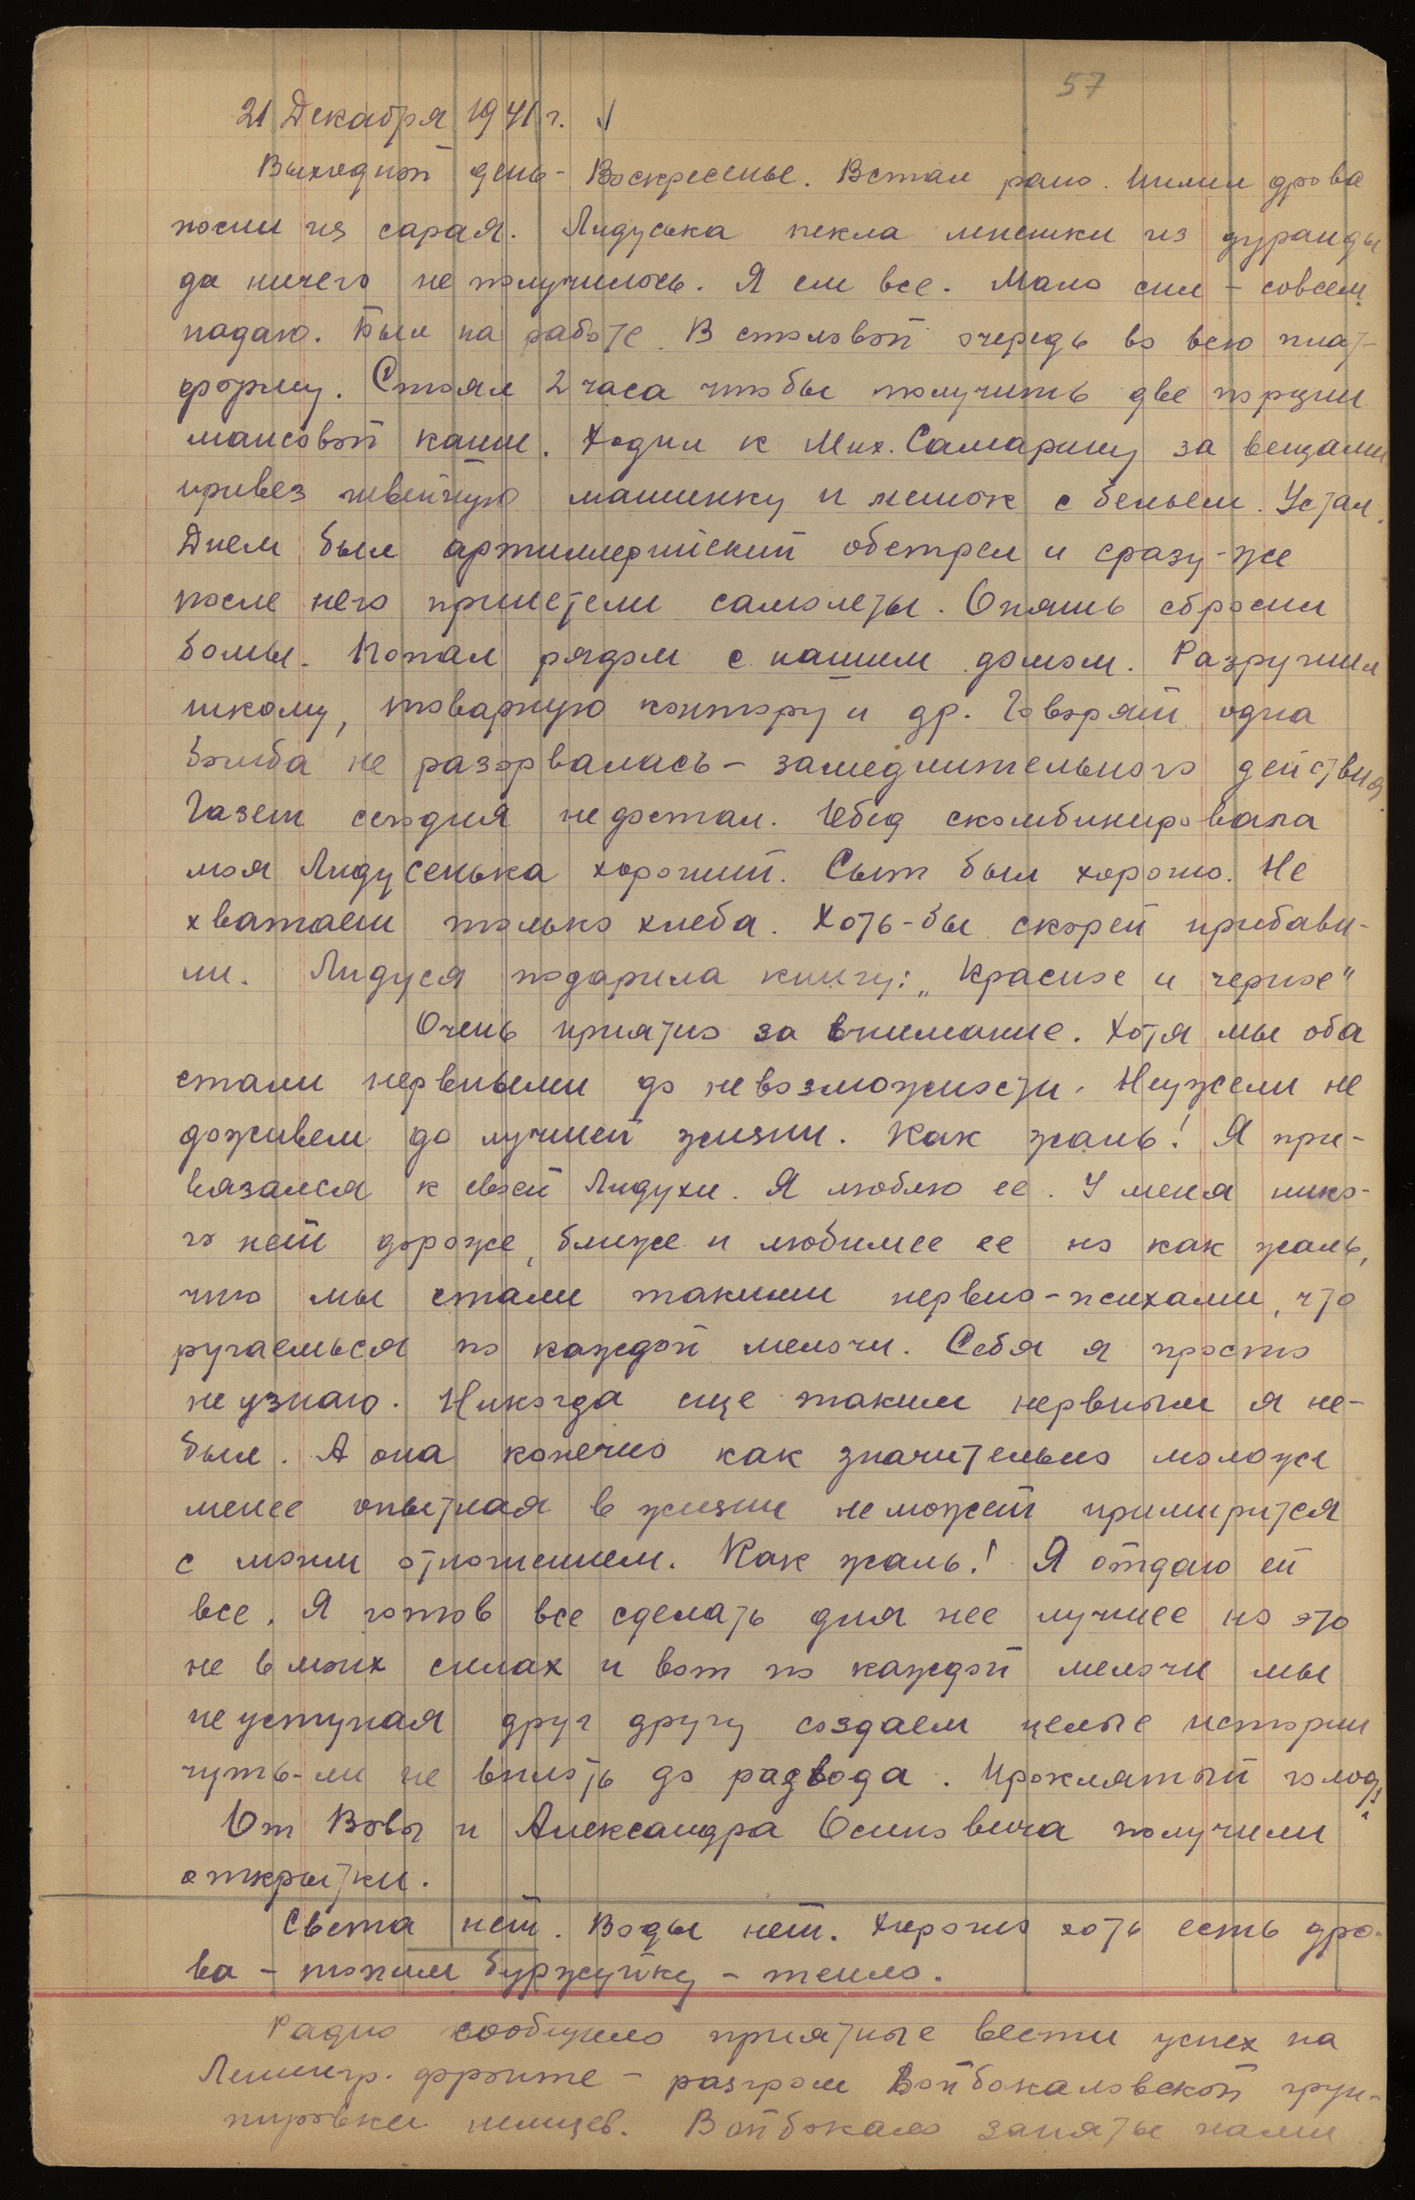 57
21 Декабря 1941 г.
Выходной день - Воскресенье. Встал рано. Пилил дрова
носил из сарая. Лидуська пекла лепешки из дуранды
да ничего не получилось. Я ем все. Мало сил - совсем
падаю. Был на работе. В столовой очередь во всю плат-
форму. Стоял 2 часа чтобы получить две порции
маисовой каши. Ходил к Мих. Самарину за вещами
привез швейную машинку и мешок с бельем. Устал.
Днем был артиллерийский обстрел и сразу-же
после него прилетели самолеты. Опять сбросил
бомбы. Попал рядом с нашим домом. Разрушил
школу, товарную контору и др. Говорят одна
бомба не разорвалась - замедлительного действия.
Газет сегодня не достал. Обед скомбинировала
моя Лидусенька хороший. Сыт был хорошо. Не
хватает только хлеба. Хоть-бы скорей прибави-
ли. Лидуся подарила книгу: „Красное и черное"
Очень приятно за внимание. Хотя мы оба
стали нервными до невозможности. Неужели не
доживем до лучшей жизни. Как жаль! Я при-
вязался к своей Лидухи. Я люблю ее. У меня нико-
го нет дороже, ближе и любимее ее но как жаль,
что мы стали такими нервно-психами, что
ругаемься по каждой мелочи. Себя я просто
не узнаю. Никогда еще таким нервным я не-
был. А она конечно как значительно моложе
менее опытная в жизни не может примирится
с моим отношением. Как жаль! Я отдаю ей
все. Я готов все сделать для нее лучшее но это
не в моих силах и вот по каждой мелочи мы
не уступая друг другу создаем целые истории
чуть-ли не вплоть до развода. Проклятый голод!
От Вовы и Александра Осиповича получили
открытки.
Света нет. Воды нет. Хорошо хоть есть дро-
ва - топим буржуйку - тепло.
Радио сообщило приятные вести успех на
Ленингр. фронте - разгром Войбокаловской груп-
пировки немцев. Войбокало занято нами